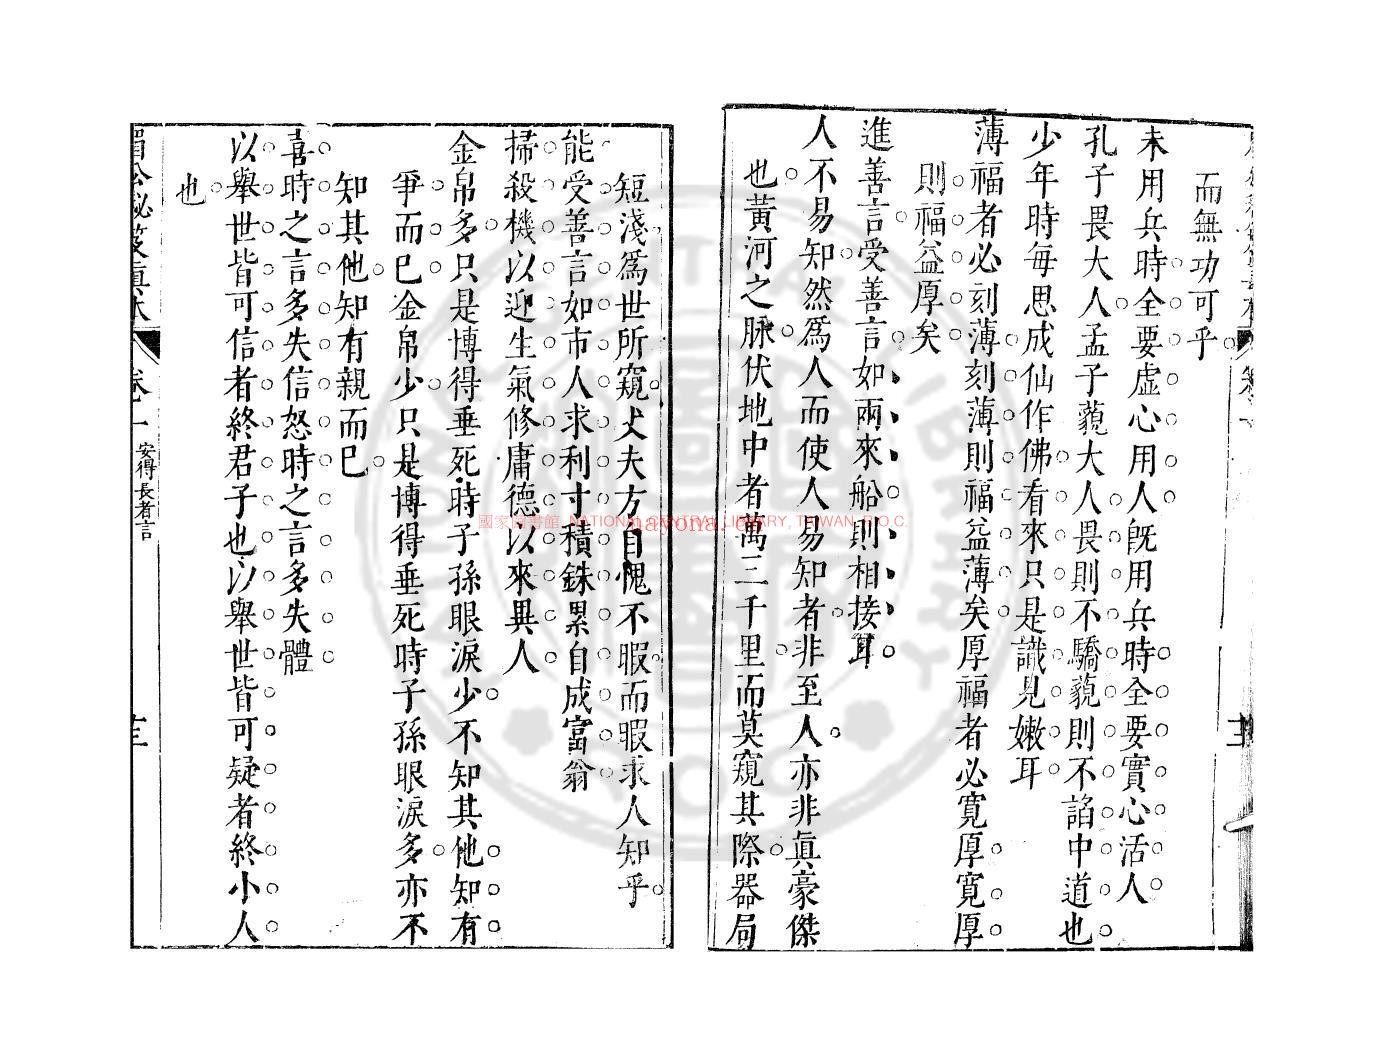 而無功可乎
未用兵時全要虛心用人旣用兵時全要實心活人
孔子畏大人孟子藐大人畏則不驕藐則不諂中道也
少年時每思成仙作佛看來只是識見嫩耳
薄福者必刻薄刻薄則福益薄矣厚福者必寬厚寬厚
則福益厚矣
進善言受善言如兩來船則相接耳
人不易知然爲人而使人易知者非至人亦非眞豪傑
也黃河之脉伏地中者萬三千里而莫窺其際器局
短淺爲世所窺丈夫方自愧不暇而暇求人知乎
能受善言如市人求利寸積銖累自成富翁
掃殺機以迎生氣修庸德以來異人
金帛多只是博得垂死時子孫眼淚少不知其他知有
爭而已金帛少只是博得垂死時子孫眼淚多亦不
知其他知有親而已
喜時之言多失信怒時之言多失體
以舉世皆可信者終君子也以舉世皆可疑者終小人
也
眉公秘笈眞本 卷一 安得長者言 十三
國家圖書館, NATIONAL CENTRAL LIBRARY, TAIWAN, R.O.C.